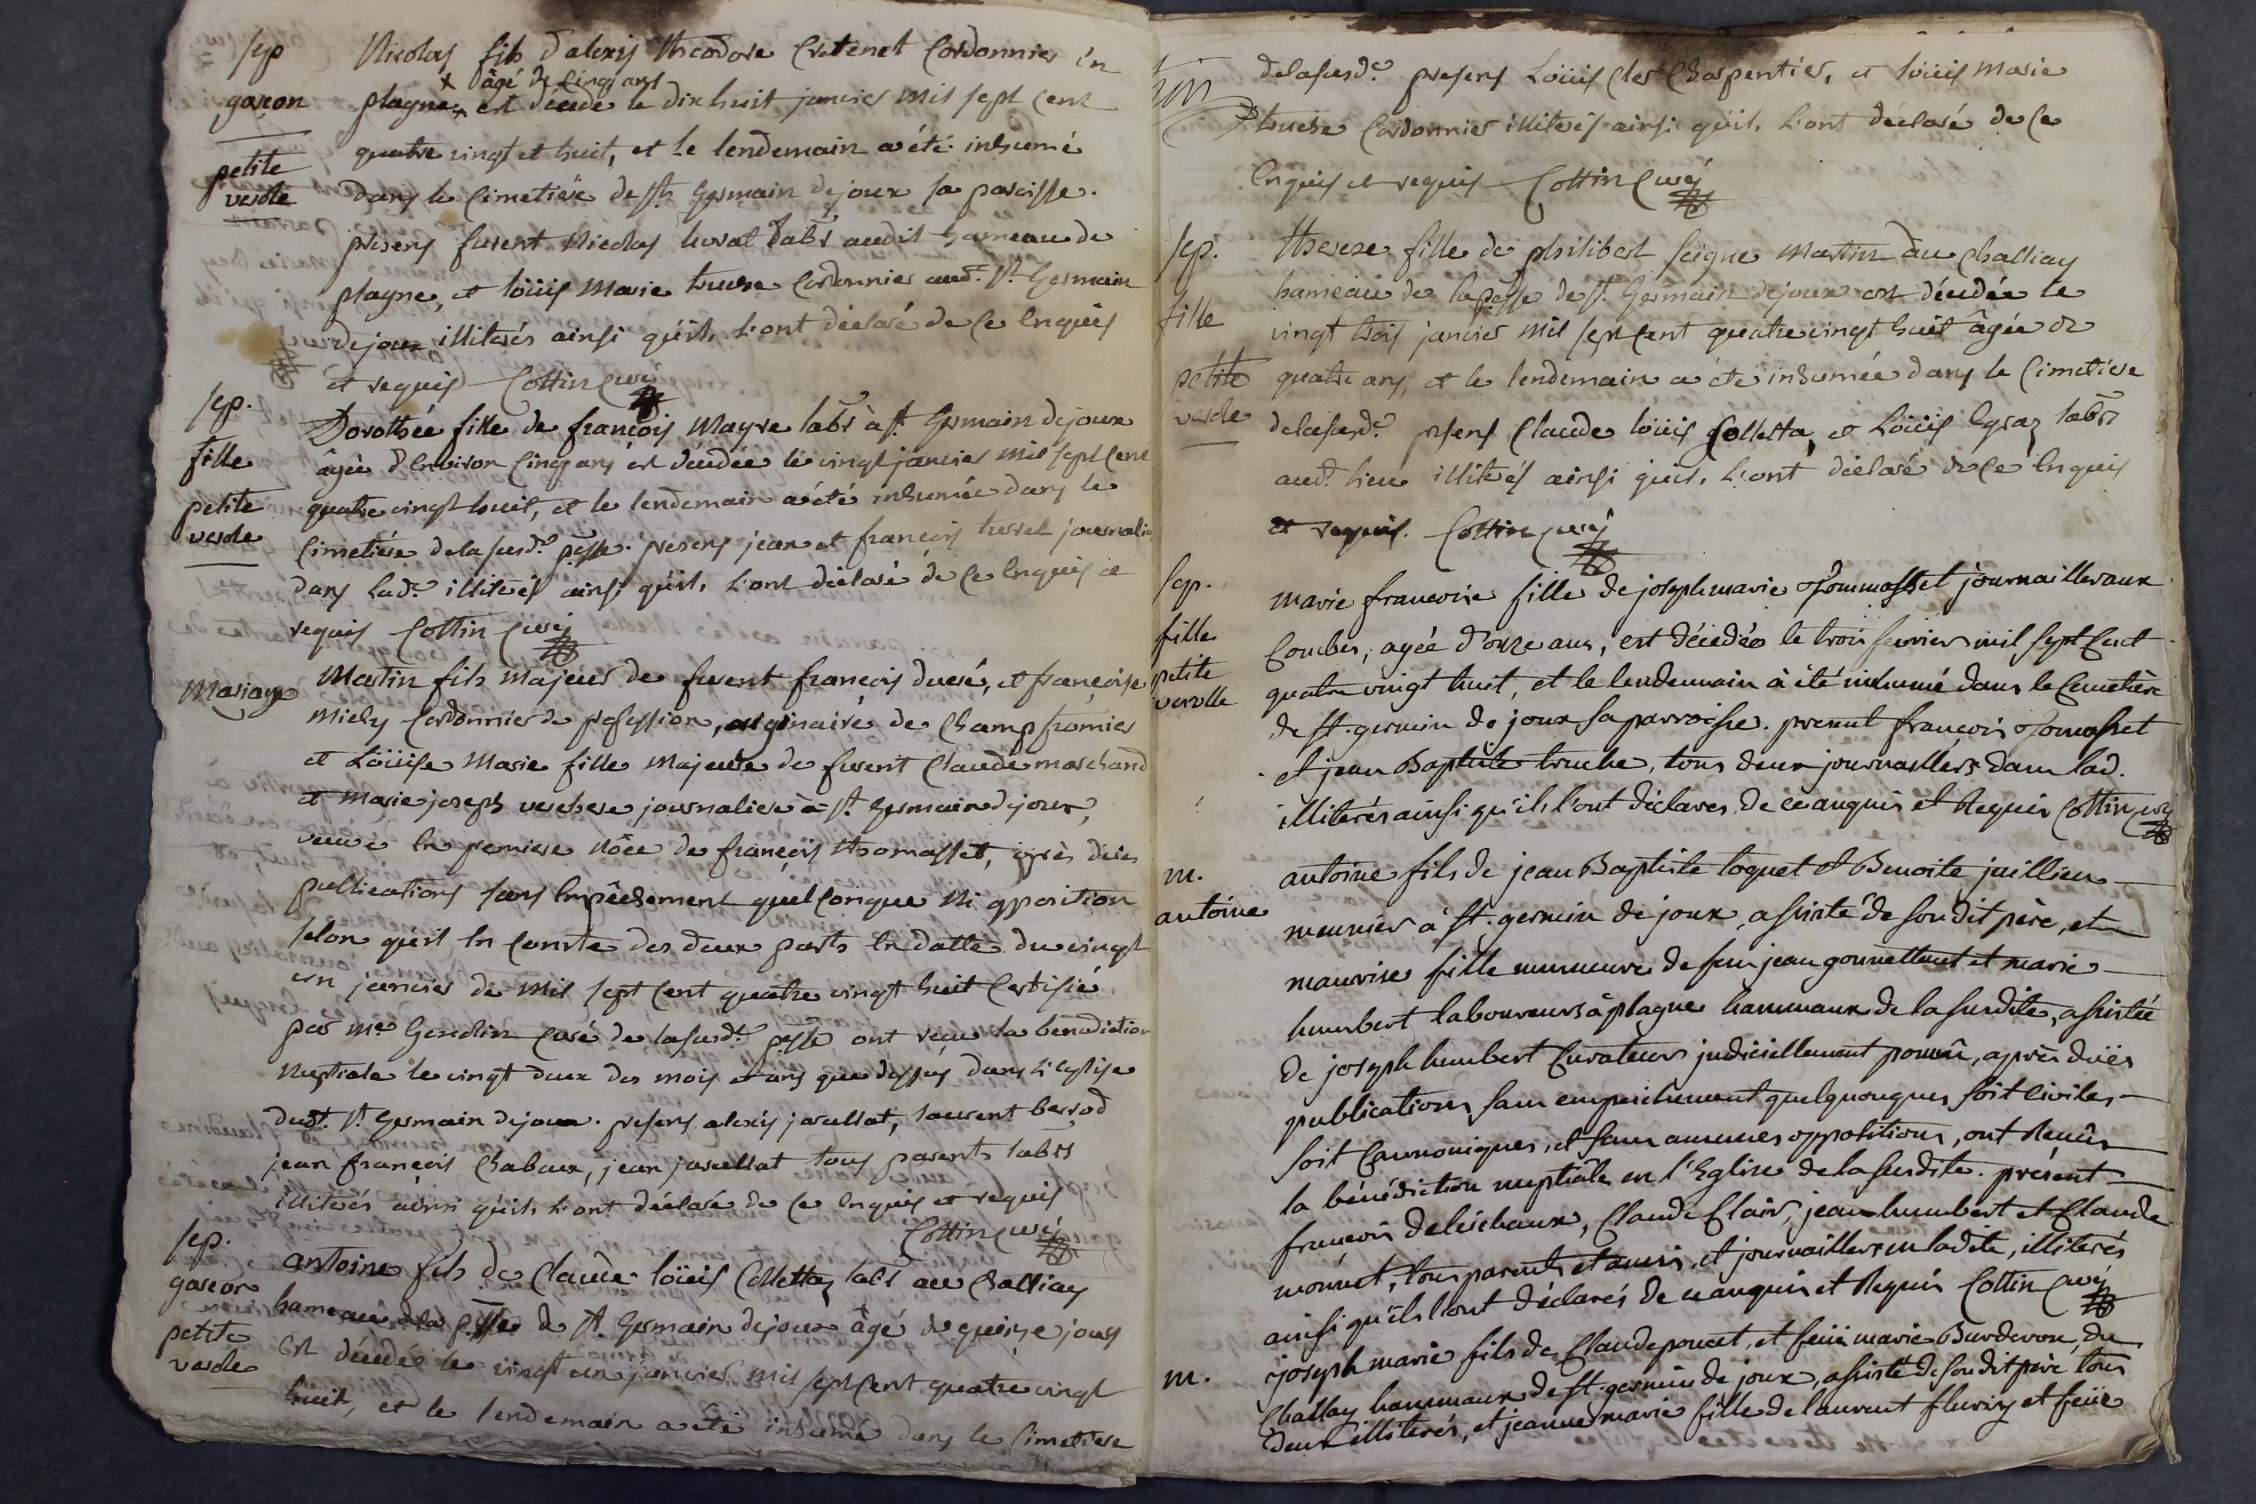 sep
garçon
petite
verole
Nicolas fils d'alexis theodore Cretenet Cordonnier en
x âgé de cinq ans
plagne x est décédé le dix huit janvier mil sept cent
quatre vingt et huit, et le lendemain a été inhumé
dans le Cimetière de st Germain dejoux sa paroisse.
présens furent Nicolas hurat labr audit hameau de
plagne, et loüis Marie truche Cordonnier audt. st. Germain
dejoux illiterés ainsi qu'ils l'ont déclaré de ce Enquis
et requis Cottin Curé
sep.
fille
petite
verole
Dorothée fille de françois Mayre labr à st Germain dejoux
âgée d'Environ cinq ans est décédée le vingt janvier mil sept cent
quatre vingt huit, et le lendemain a été inhumée dans le
Cimetière delasusde. psse. présens jean et françois turrel journaliers
dans lade. illiterés ainsi qu'ils l'ont déclaré de ce Enquis et
requis Cottin Curé
Mariage
Martin fils majeur de furent françois ducré, et françoise
Cordonnier de profession, originaire de Champfromier
et Loüise Marie fille majeure de furent Claude marchand
et Marie joseph verchere journaliere à st Germain dejoux,
veuve En premiere Nôce de françois thomasset, après dües
publications sans Empêchement quelconque Ni opposition
selon qu'il En conste des deux parts En datte du vingt
un janvier de mil sept cent quatre vingt huit Certifié
par Mre Gendrin Curé de lasusdt. psse ont reçu la bénédiction
Nuptiale le vingt deux des mois et ans que dessus dans l'eglise
dudt. st Germain dejoux. présens alexis javellat, laurent berrod
jean françois Chabaux, jean javellat tous parents labrs
illiterés ainsi qu'ils l'ont déclaré de ce Enquis et requis
Cottin Curé
sep.
garcon
petite
verole
antoine fils de Claude loüis Colletta, labr au Challiay
hameau dela psse de st. Germain dejoux âgé de quinze jours
est décédé le vingt un janvier mil sept cent quatre vingt
huit, et le lendemain a été inhumé dans le Cimetiere
delasusde. présens Loüis Clerc Charpentier, et loüis Marie
truche Cordonnier illiterés ainsi qu'ils l'ont déclaré de ce
Enquis et requis Cottin Curé
sep.
fille
petite
verole
therese fille de philibert seigne Martin au Challiay
hameau de lapsse de st. Germain dejoux est décédée le
vingt trois janvier mil sept cent quatre vingt huit âgée de
quatre ans, et le lendemain a été inhumée dans le Cimetiere
delasusde. présens Claude loüis Colletta, et Loüis Egraz labrs
audt. lieu illiterés ainsi qu'ils l'ont déclaré de ce Enquis
et requis. Cottin Curé
sep.
fille
petite
verolle
marie francoise fille de joseph marie thommasset journaillier aux
Combes, agée d'onze ans, est décédée le trois fevrier mil sept cent
quatre vingt huit, et le lendemain à été inhumé dans le Cemetière
de st. germin de joux sa parroisse. present françois thomasset
et jean Baptiste truche, tous deux journailliers dans lad.
illiterés ainsi qu'ils l'ont déclarés de ce anquis et Requis Cottin Curé
m.
antoine
antoine fils de jean Baptiste toquet et Benoite juillien
meunier à st. germin de joux, assisté de son dit père, et
maurise fille mineure de feu jean gonnettant et marie
humbert laboureurs à plagne hammaux de la susdite, assistée
de joseph humbert Curateur judiciellement pourvû, après düës
publications sans empeichement quelquonques soit civiles
soit Cannoniques, et sans aucunes oppositions, ont Reçûs
la bénédiction nuptiale en l'Eglise de la susdite. présent
francois deleschaux, Claude Clair, jean humbert et Claude
monnet, tous parents et amis, et journailliers en ladite, illiterés
ainsi qu'ils l'ont déclarés de ce anquis et Requis Cottin Curé
m.
joseph marie fils de Claude poncet, et feüe marie Burderon, du
Challay hammaux de st. germin de joux, assisté de son dit père tous
deux illiterés, et jeanne marie fille de laurent fluriy et feüe